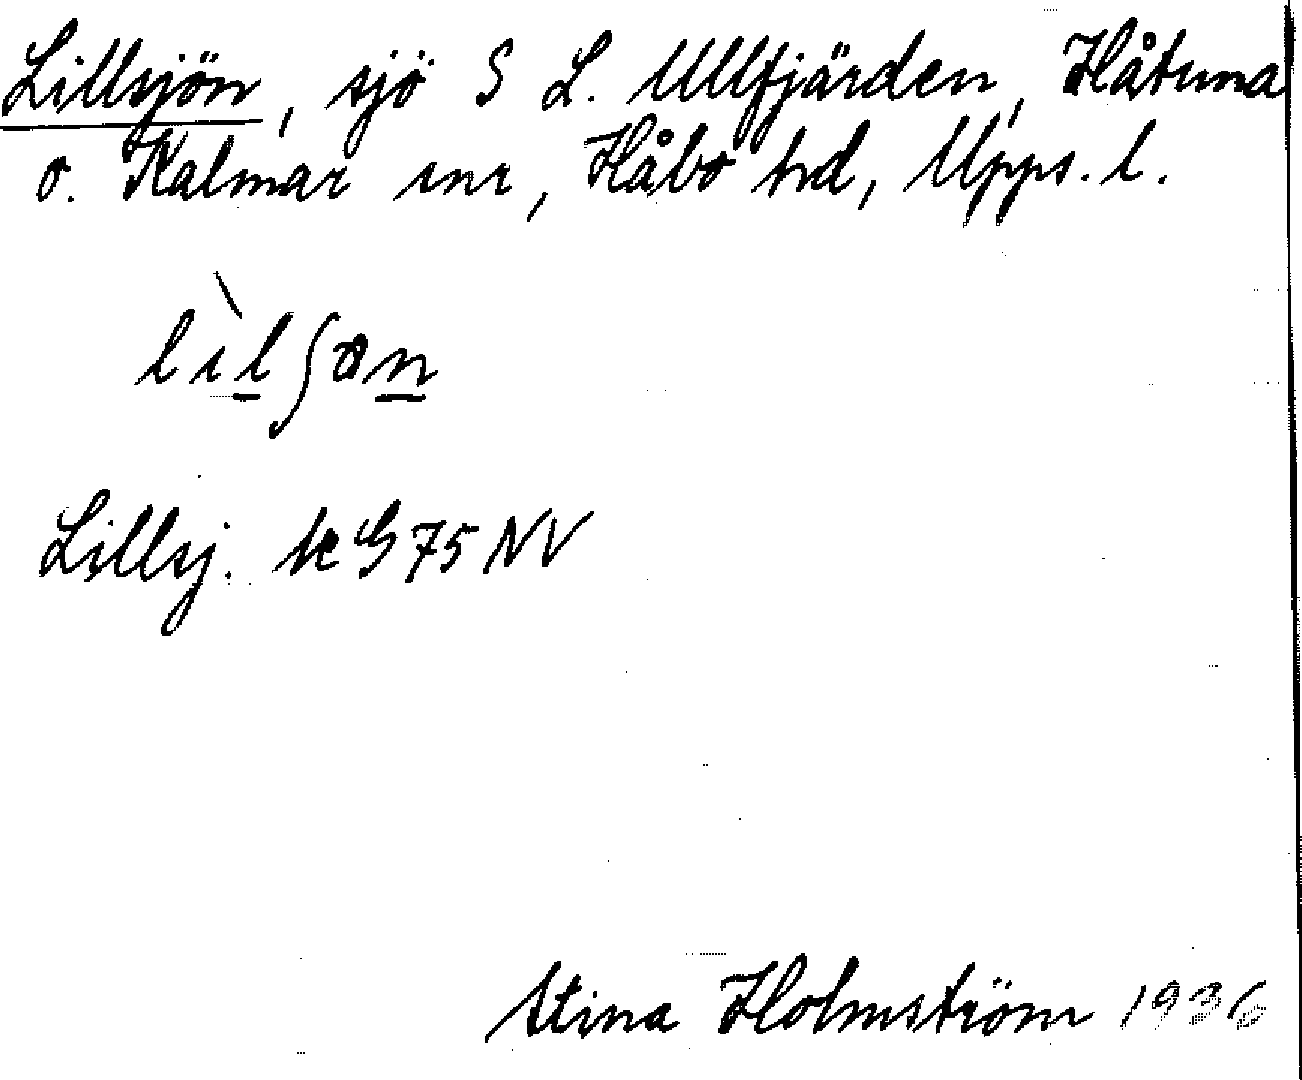 Lillsjön, sjö S L. Ullfjärden, Håtuna
o. Kalmar snr, Håbo hd, Upps. l.
lìlʃøn
Lillsj. k G 75 NV
Stina Holmström 1936